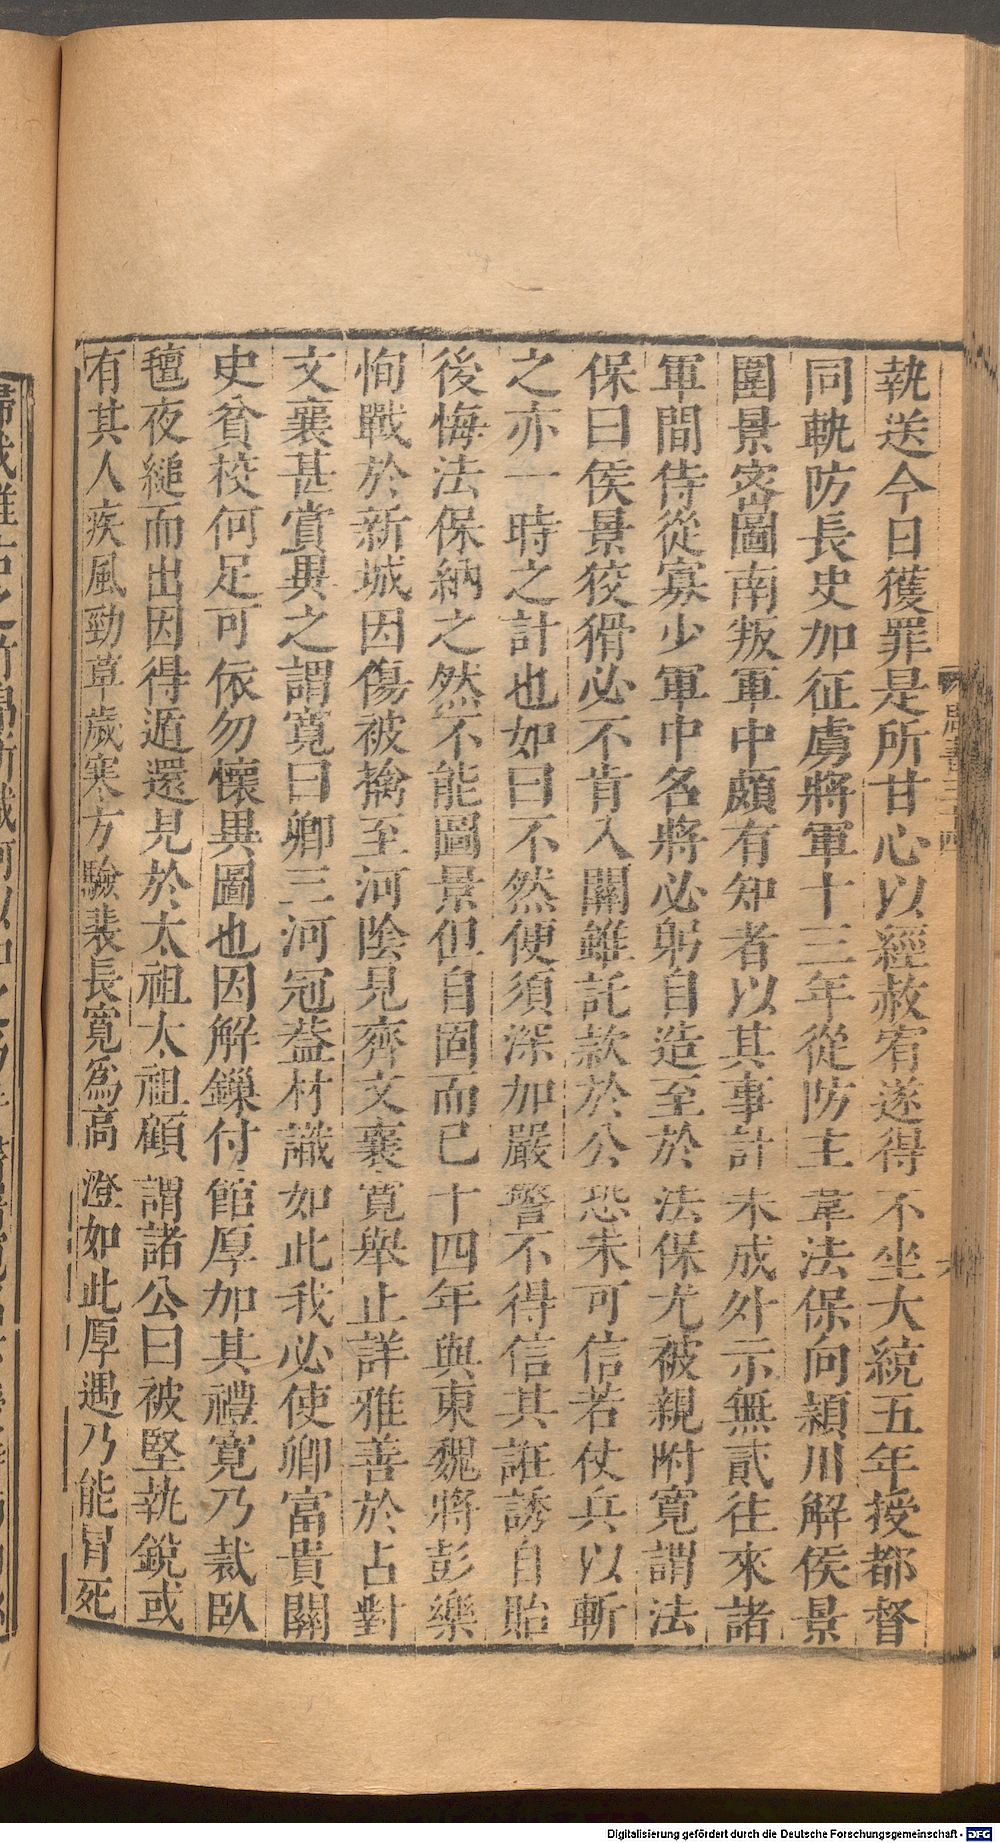 執送今日獲罪是所甘心以經赦宥遂得不坐大統五年授都督
同軌防長史加征虜將軍十三年從防主韋法保向潁川解侯景
圍景密圖南叛軍中頗有知者以其事計未成外示無貳往來諸
軍間侍從寡少軍中名將必躬自造至於法保尤被親附寛謂法
保曰侯景狡猾必不肯入關雖託款於公恐未可信若仗兵以斬
之亦一時之計也如曰不然便須深加嚴警不得信其誑誘自貽
後悔法保納之然不能圖景但自固而已十四年與東魏將彭樂
恂戰於新城因傷被擒至河陰見齊文襄寛舉止詳雅善於占對
文襄甚賞異之謂寛曰卿三河冠蓋材識如此我必使卿富貴關
史貧校何足可依勿懷異圖也因解鏁付館厚加其禮寛乃裁臥
氊夜縋而出因得遁還見於太祖太祖顧謂諸公曰被堅執銳或
有其人疾風勁草歲寒方驗裴長寛爲高澄如此厚遇乃能冒死
Digitalisierung gefördert durch die Deutsche Forschungsgemeinschaft - DFG